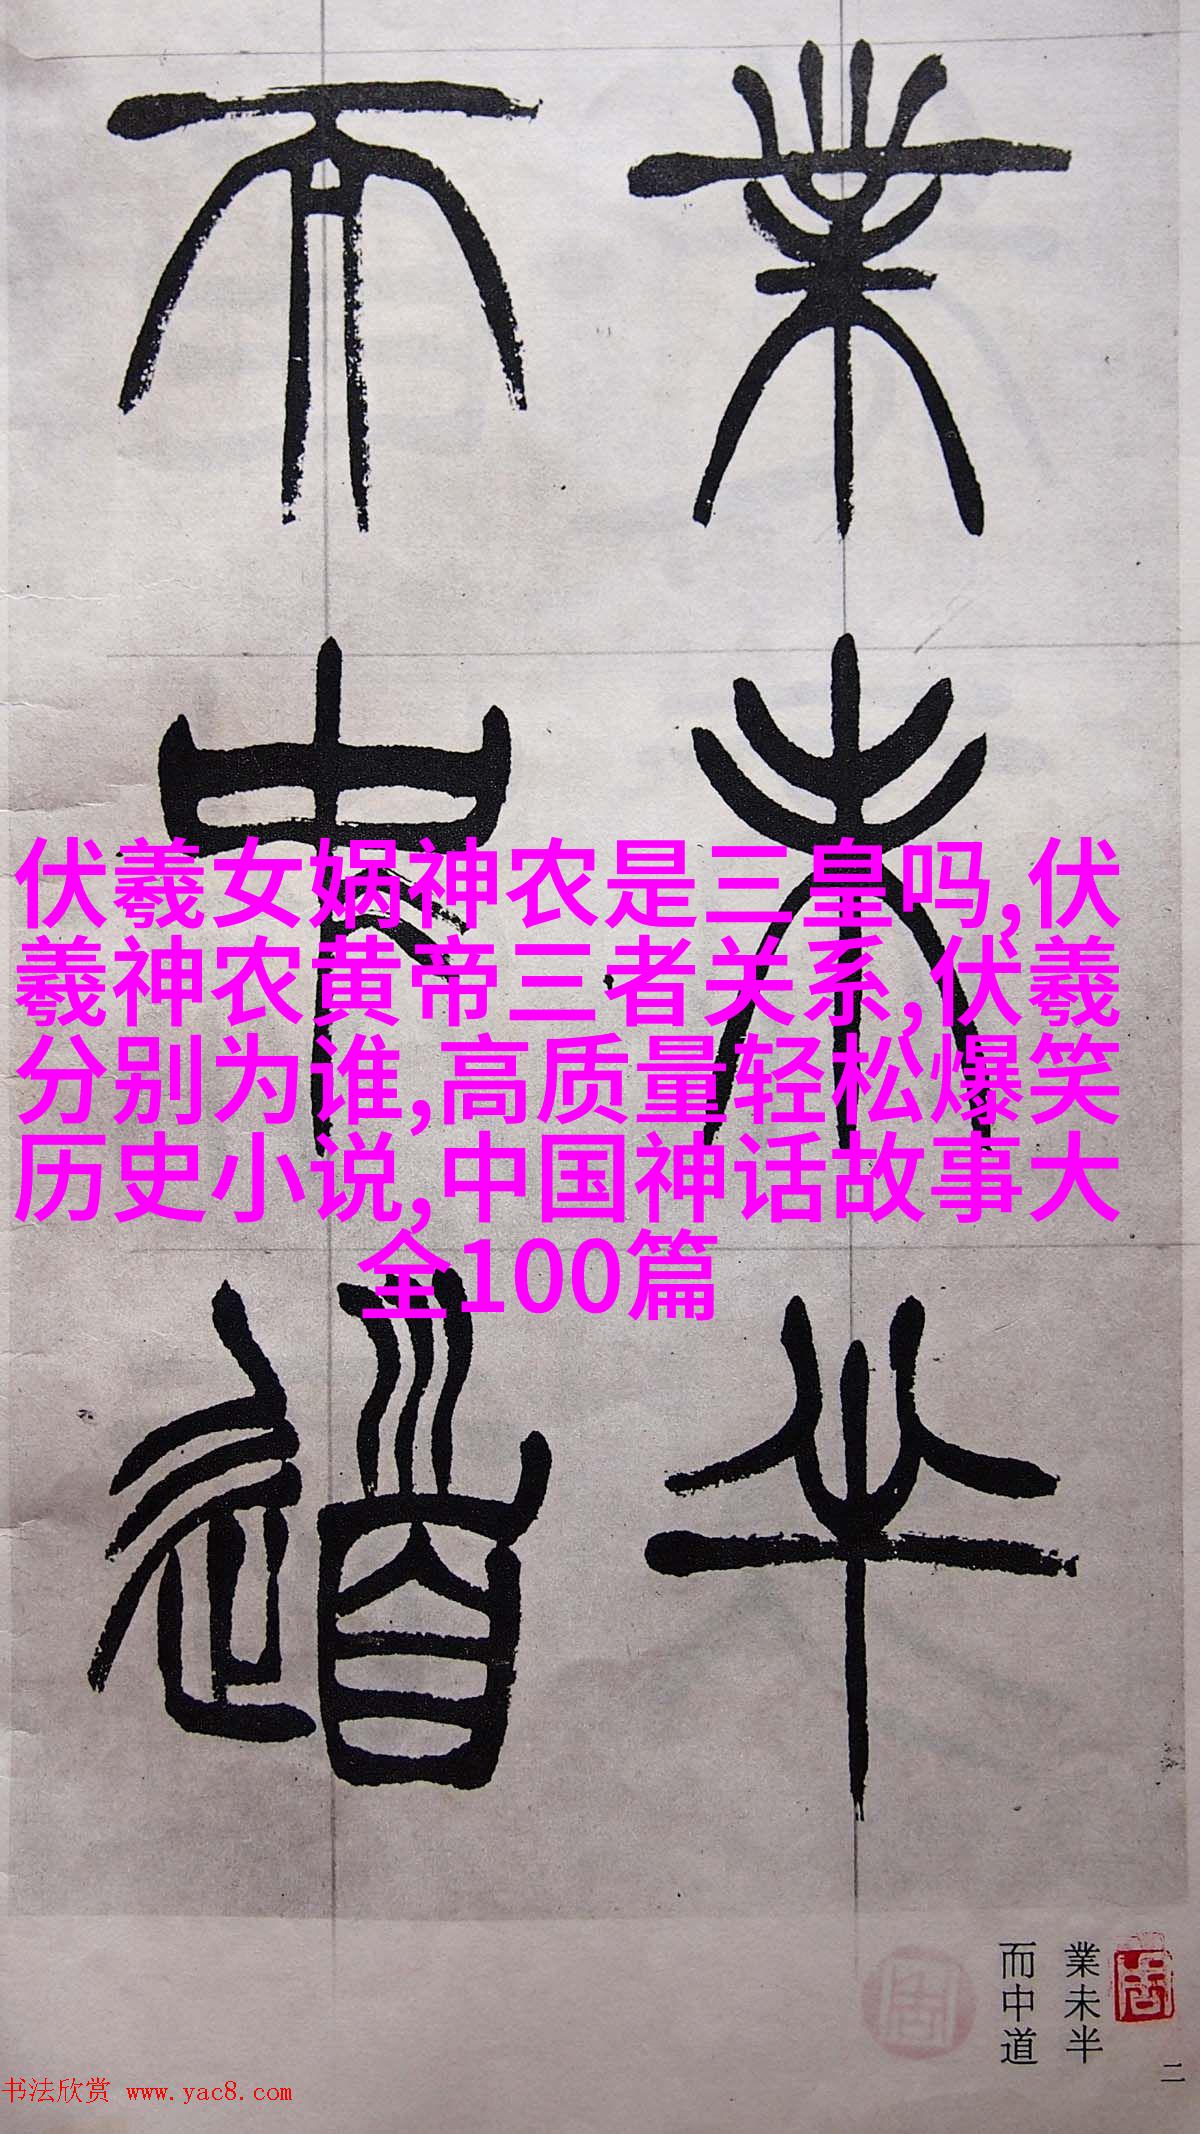 業未半
而中道
伏羲女娲神农是三皇吗,伏
羲神农黄帝三者关系,伏羲
分别为谁,高质量轻松爆笑
历史小说,中国神话故事大
全100篇
業未半
而中道
二
书法欣赏 www.yac8.com